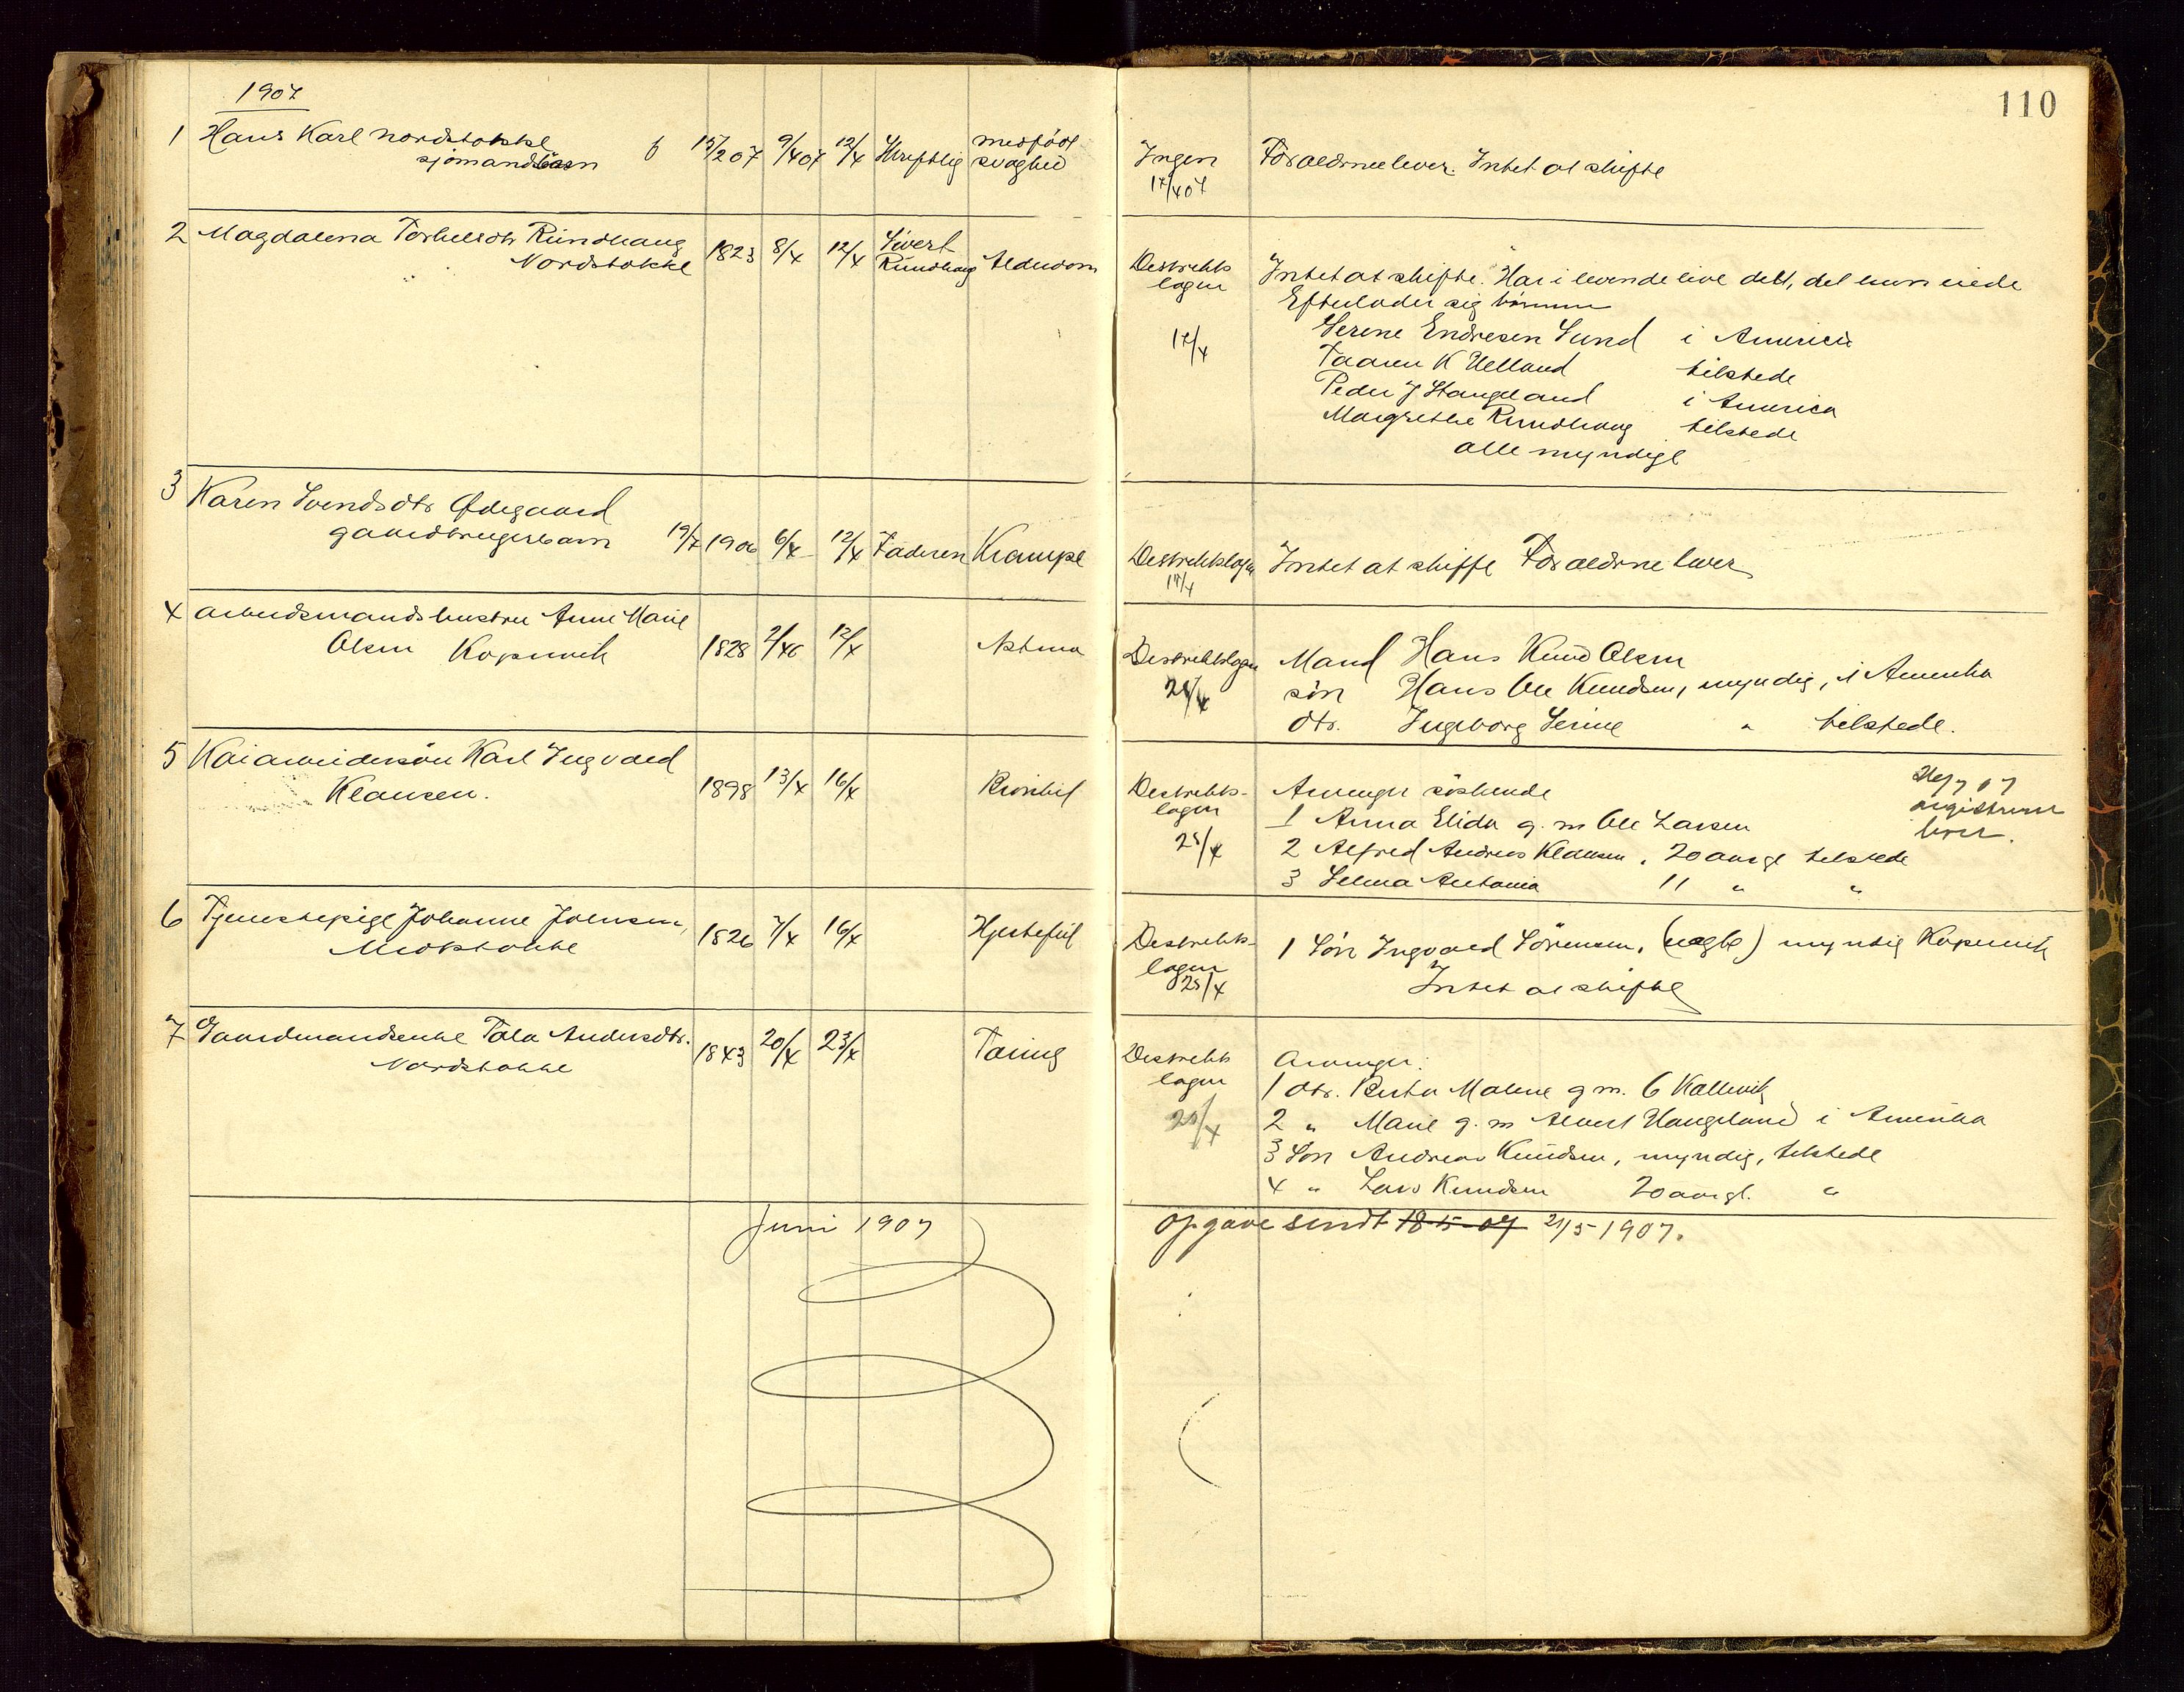 110
1907
1 Hans Karl Nordstokke
sjømandsbarn f 15/2 07 9/4 07 12/4 Skriftlig medfødt svaghed
Ingen 17/4 07 Forældrene lever. Intet at skifte
2 Magdalena Torkelsdtr Rundhaug
Nordstokke 1823 8/4 12/4 Sivert Rundhaug Alderdom
Destrikts lægen 17/4 Intet at skifte. Har i levende live delt, det hun eiede
Efterlader sig børnene
Serine Endresen Sund i America
Taaren K Helland tilstede
Peder J Stangeland i America
Margrethe Rundhaug tilstede
alle myndige
3 Karen Svendsdtr Ødegaard
gaardbrugerbarn 19/7 1906 6/4 12/4 Faderen Krampe
Destriktslægen 17/4 Intet at skifte Forældrene lever
4 Arbeidsmandshustru Anne Marie
Olsen Kopervik 1828 2/4 12/4 Astma
Destriktslægen 25/4 Mand Hans Knud Olsen
søn Hans Ole Knudsen, myndig, i Amerika
dtr. Ingeborg Serine " tilstede.
5 Kaiarbeidersøn Karl Ingvald
Klausen. 1898 13/4 16/4
Destrikts-lægen 25/4 Arvinger søskende
26/7 07
1 Anna Elida g. m Ole Larsen
2 Alfred Andreas Klausen, 20 aarig tilstede
3 Selma Antonia 11 " "
6 Tjenestepige Johanne Johnsen,
Midtstokke 1826 7/4 16/4 Hjertefeil
Destrikts-lægen 25/4 1 Søn Ingvald Sørensen, (uægte) myndig Kopervik
Intet at skifte
7 Gaardmandsenke Tala Andersdtr.
Nordstokke 1843 20/4 23/4 Tæring
Destrikts lægen Arvinger:
1 dtr. Berta Malene g m. C Kallevik
2 " Marie g. m Albert Haugeland i Amerika
3 Søn Andreas Knudsen, myndig, tilstede
4 " Lars Knudsen 20 aarigl. "
Juni 1907
Opgave sendt 18-5-07 21/5-1907.